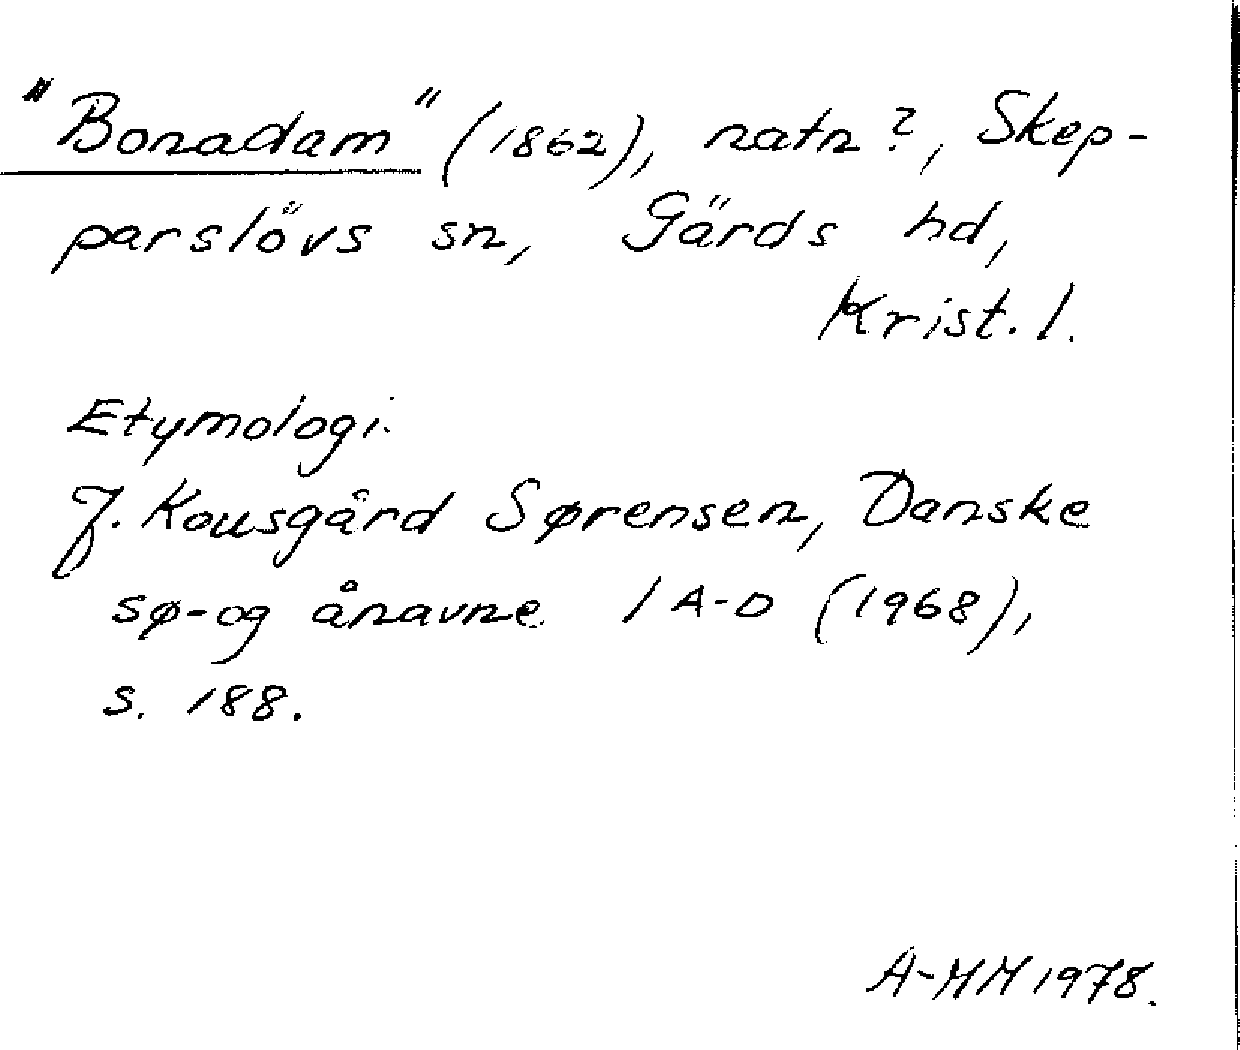 "Bonadam" (1862), natn?, Skep-
parslövs sn, Gärds hd,
Krist. l.
Etymologi.
J. Kousgård Sørensen, Danske
sø- og ånavne 1 A-D (1968),
s. 188.
A-MM 1978.